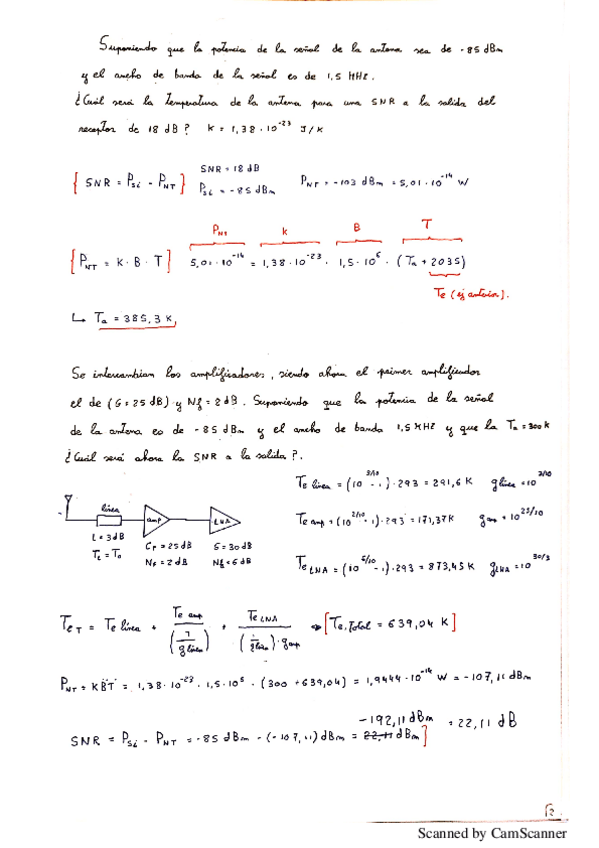 Suponiendo que la potencia de la señal de la antena sea de -85 dBm
y el ancho de banda de la señal es de 1,5 MHz.
¿Cuál será la temperatura de la antena para una SNR a la salida del
receptor de 18 dB? K = 1,38 · 10^-23 J/K
{ SNR = Psi - PNT } SNR = 18 dB PNT = -103 dBm = 5,01 · 10^-14 W
Psi = -85 dBm
PNT K B T
{ PNT = K · B · T ] 5,01 · 10^-14 = 1,38 · 10^-23 · 1,5 · 10^6 · (Ta + 2035)
Te (ej anterior).
↳ Ta = 385,3 K,
Se intercambian los amplificadores, siendo ahora el primer amplificador
el de (G = 25 dB) y Nf = 2 dB. Suponiendo que la potencia de la señal
de la antena es de -85 dBm y el ancho de banda 1,5 MHz y que la Ta = 300 K
¿Cuál será ahora la SNR a la salida?.
Te línea = (10^3/10 - 1) · 293 = 291,6 K g línea = 10^3/10
línea amp LNA
Te amp = (10^2/10 - 1) · 293 = 171,37 K g amp = 10^25/10
L = 3 dB G = 25 dB G = 30 dB
TL = To Nf = 2 dB Nf = 6 dB
Te LNA = (10^6/10 - 1) · 293 = 873,45 K gLNA = 10^30/3
TeT = Te línea + Te amp / (1/g línea) + Te LNA / (1/g línea) · g amp => [Te, Total = 639,04 K]
PNT = KBT = 1,38 · 10^-23 · 1,5 · 10^6 · (300 + 639,04) = 1,9444 · 10^-14 W = -107,11 dBm
-192,11 dBm = 22,11 dB
SNR = Psi - PNT = -85 dBm - (-107,11) dBm = 22,11 dBm]
Scanned by CamScanner